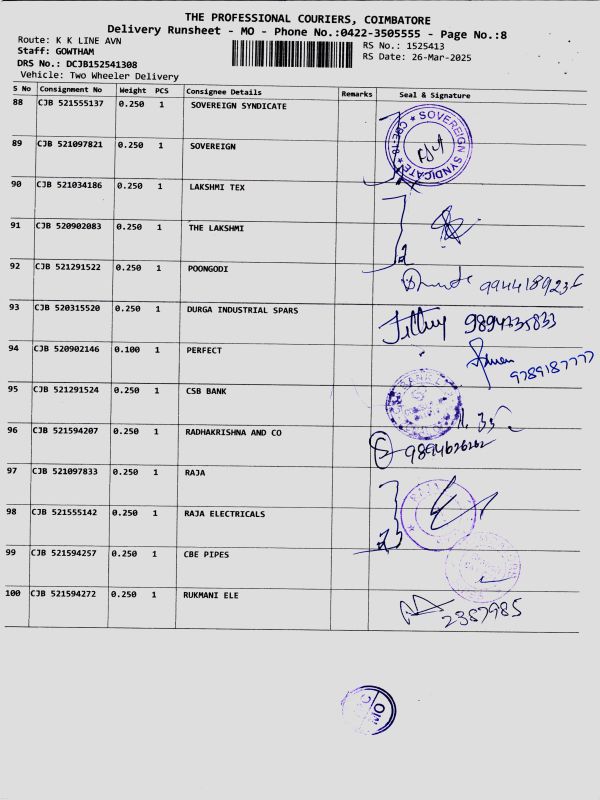 THE PROFESSIONAL COURIERS, COIMBATORE
Delivery Runsheet - MO - Phone No.:0422-3505555 - Page No.:8
Route: K K LINE AVN
RS No.: 1525413
Staff: GOWTHAM
RS Date: 26-Mar-2025
DRS No.: DCJB152541308
Vehicle: Two Wheeler Delivery
S No Consignment No Weight PCS Consignee Details Remarks Seal & Signature
88 CJB 521555137 0.250 1 SOVEREIGN SYNDICATE
SOVEREIGN SYNDICATE
89 CJB 521097821 0.250 1 SOVEREIGN
90 CJB 521034186 0.250 1 LAKSHMI TEX
91 CJB 520902083 0.250 1 THE LAKSHMI
2
92 CJB 521291522 0.250 1 POONGODI
93 CJB 520315520 0.250 1 DURGA INDUSTRIAL SPARS
94 CJB 520902146 0.100 1 PERFECT
9789187777
95 CJB 521291524 0.250 1 CSB BANK
96 CJB 521594207 0.250 1 RADHAKRISHNA AND CO
97 CJB 521097833 0.250 1 RAJA
98 CJB 521555142 0.250 1 RAJA ELECTRICALS
99 CJB 521594257 0.250 1 CBE PIPES
100 CJB 521594272 0.250 1 RUKMANI ELE
2357985
MO